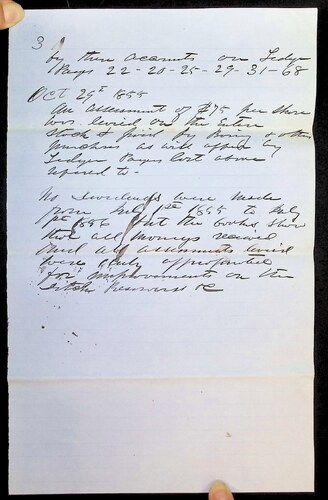 3
by these accounts on Ledger
Pages 22-20-25-29-31-68
Oct 29th 1855
An assessment of $75 per share
was levied on the entire
Stock & paid by & others
as will appear by
Ledger Pages last above
refered to -
No Dividends were made
from July 1st 1855 to July
1st 1856 but the books show
that all moneys received
and all assessments levied
were duly appropriated
for improvements on the
Ditches Reservoirs &c